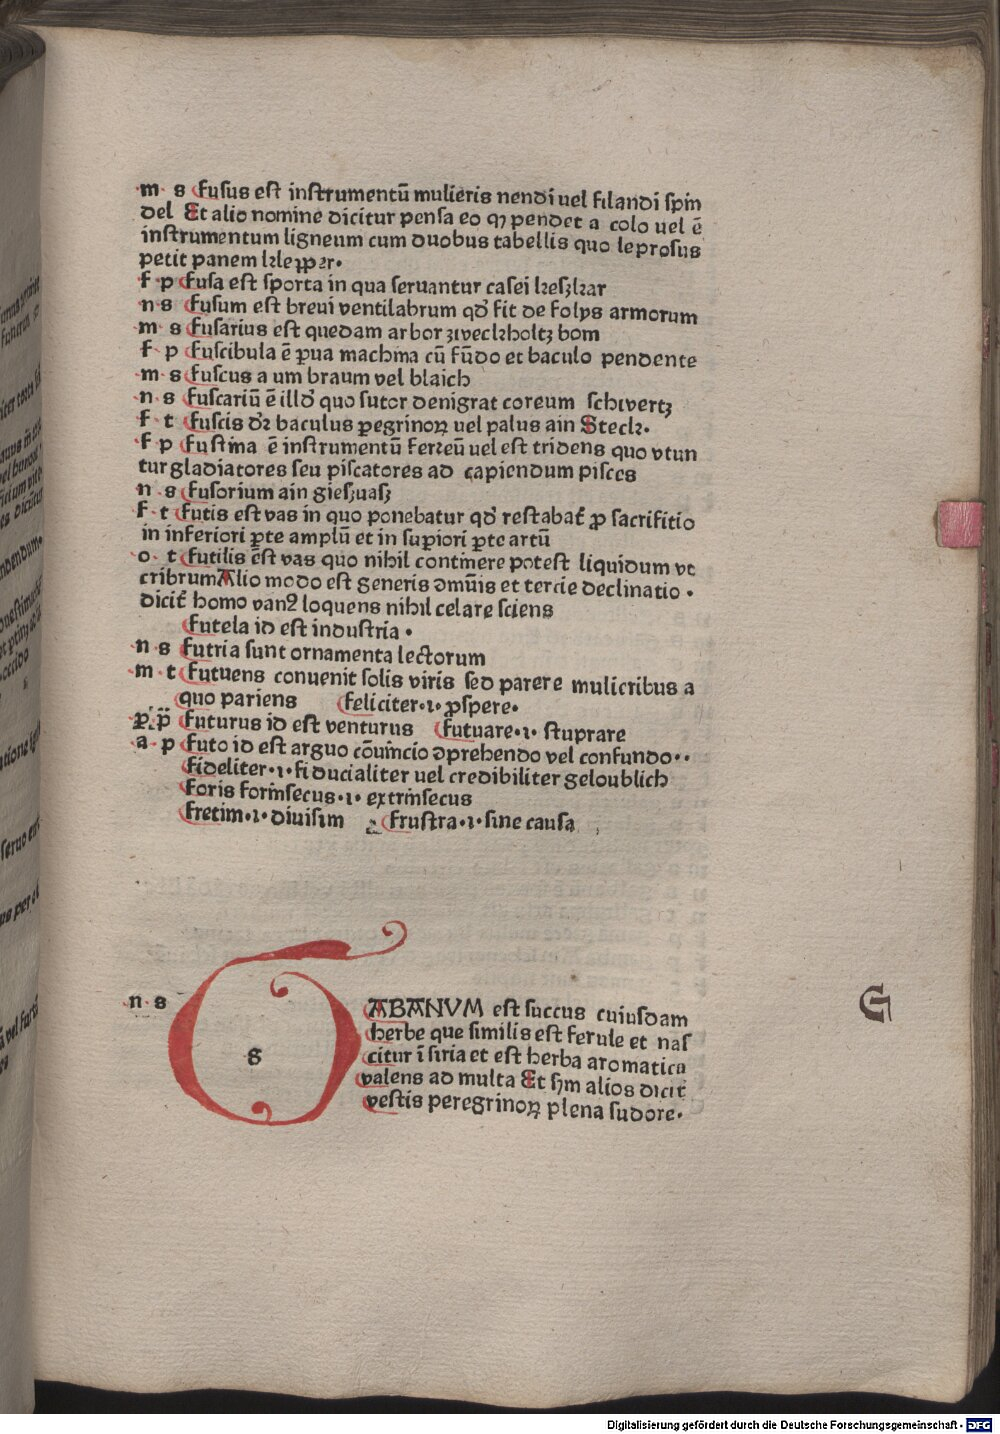 m s Fusus est instrumentū mulieris nendi uel filandi spin
del Et alio nomine dicitur pensa eo ꝙ pendet a colo uel ē
instrumentum ligneum cum duobus tabellis quo leprosus
petit panem
f p Fusa est sporta in qua seruantur casei kesʒkar
n s Fusum est breui ventilabrum qđ fit de folys armorum
m s Fusarius est quedam arbor ʒweckholtʒ bom
f p Fuscibula ē ꝑua machina cū fūdo et baculo pendente
m s Fuscus a um braum vel blaich
n s Fuscariū ē illđ quo sutor denigrat coreum schwertʒ
f t Fustis dꝛ baculus ꝑegrinoꝝ uel palus ain Steck.
f p Fustina ē instrumentū ferreū uel est tridens quo vtun
tur gladiatores seu piscatores ad capiendum pisces
n s Fusorium ain giesʒuasʒ
f t Futis est vas in quo ponebatur qđ restabat̄ ꝓ sacrifitio
in inferiori ꝑte amplū et in suꝑiori ꝑte artū
o t Futilis est vas quo nihil continere potest liquidum vt
cribrum Alio modo est generis ꝯmūis et tercie declinatio .
dicit̄ homo vanꝰ loquens nihil celare sciens
Futela id est industria .
n s Futria sunt ornamenta lectorum
m t Futuens conuenit solis viris sed parere mulieribus a
quo pariens Feliciter .ı. ꝓspere.
ꝑ. p̄ Futurus id est venturus Futuare .ı. stuprare
a p Futo id est arguo cōuincio ꝯprehendo vel confundo..
Fideliter .ı. fiducialiter uel credibiliter geloublich
Foris forinsecus .ı. extrinsecus
Fretim .ı. diuisim Frustra .ı. sine causa
G
n s g ABANVM est succus cuiusdam
herbe que similis est ferule et nas
citur ī siria et est herba aromatica
valens ad multa Et sm̄ alios dicit̄
vestis peregrinoꝝ plena sudore.
Digitalisierung gefördert durch die Deutsche Forschungsgemeinschaft - DFG